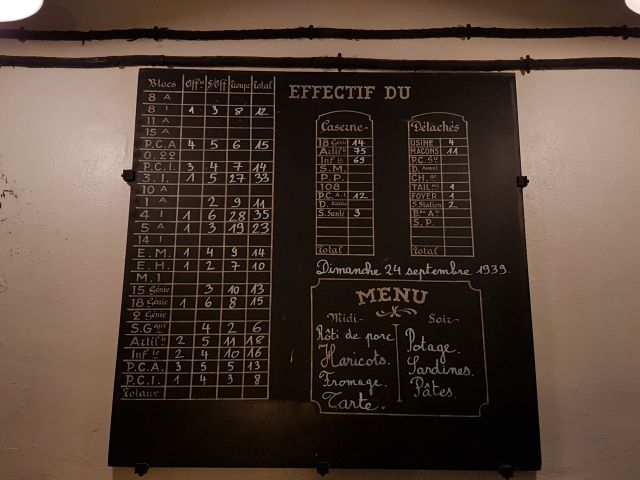 EFFECTIF DU
Blocs Offrs S/Off Troupe Total
8 A
8 I 1 3 8 12
11 A
15 A
P.C.A 4 5 6 15
O.22
P.C.I. 3 4 7 14
3.I. 1 5 27 33
10 A
1 A 2 9 11
4 I 1 6 28 35
5 A 1 3 19 23
14 I
E.M. 1 4 9 14
E.H. 1 2 7 10
M.I
15 Génie 3 10 13
18 Génie 1 6 8 15
2 Génie
S.G 4 2 6
Artil 2 5 11 18
Inf 2 4 10 16
P.C.A. 3 5 5 13
P.C.I. 1 4 3 8
Totaux
Caserne
18 Génie 14
Artil 75
Inf 69
S.M.
P.P.
108
P.C.A.I 12
D.
S. Santé 3
Total
Détachés
USINE 4
MAÇONS 11
P.C. St
D. Avant
CH.
TAIL 1
FOYER 1
S. Station 2
B A
S.P.
Total
Dimanche 24 septembre 1939.
MENU
Midi Soir
Rôti de porc
Haricots.
Fromage.
Tarte.
Potage.
Sardines.
Pâtes.